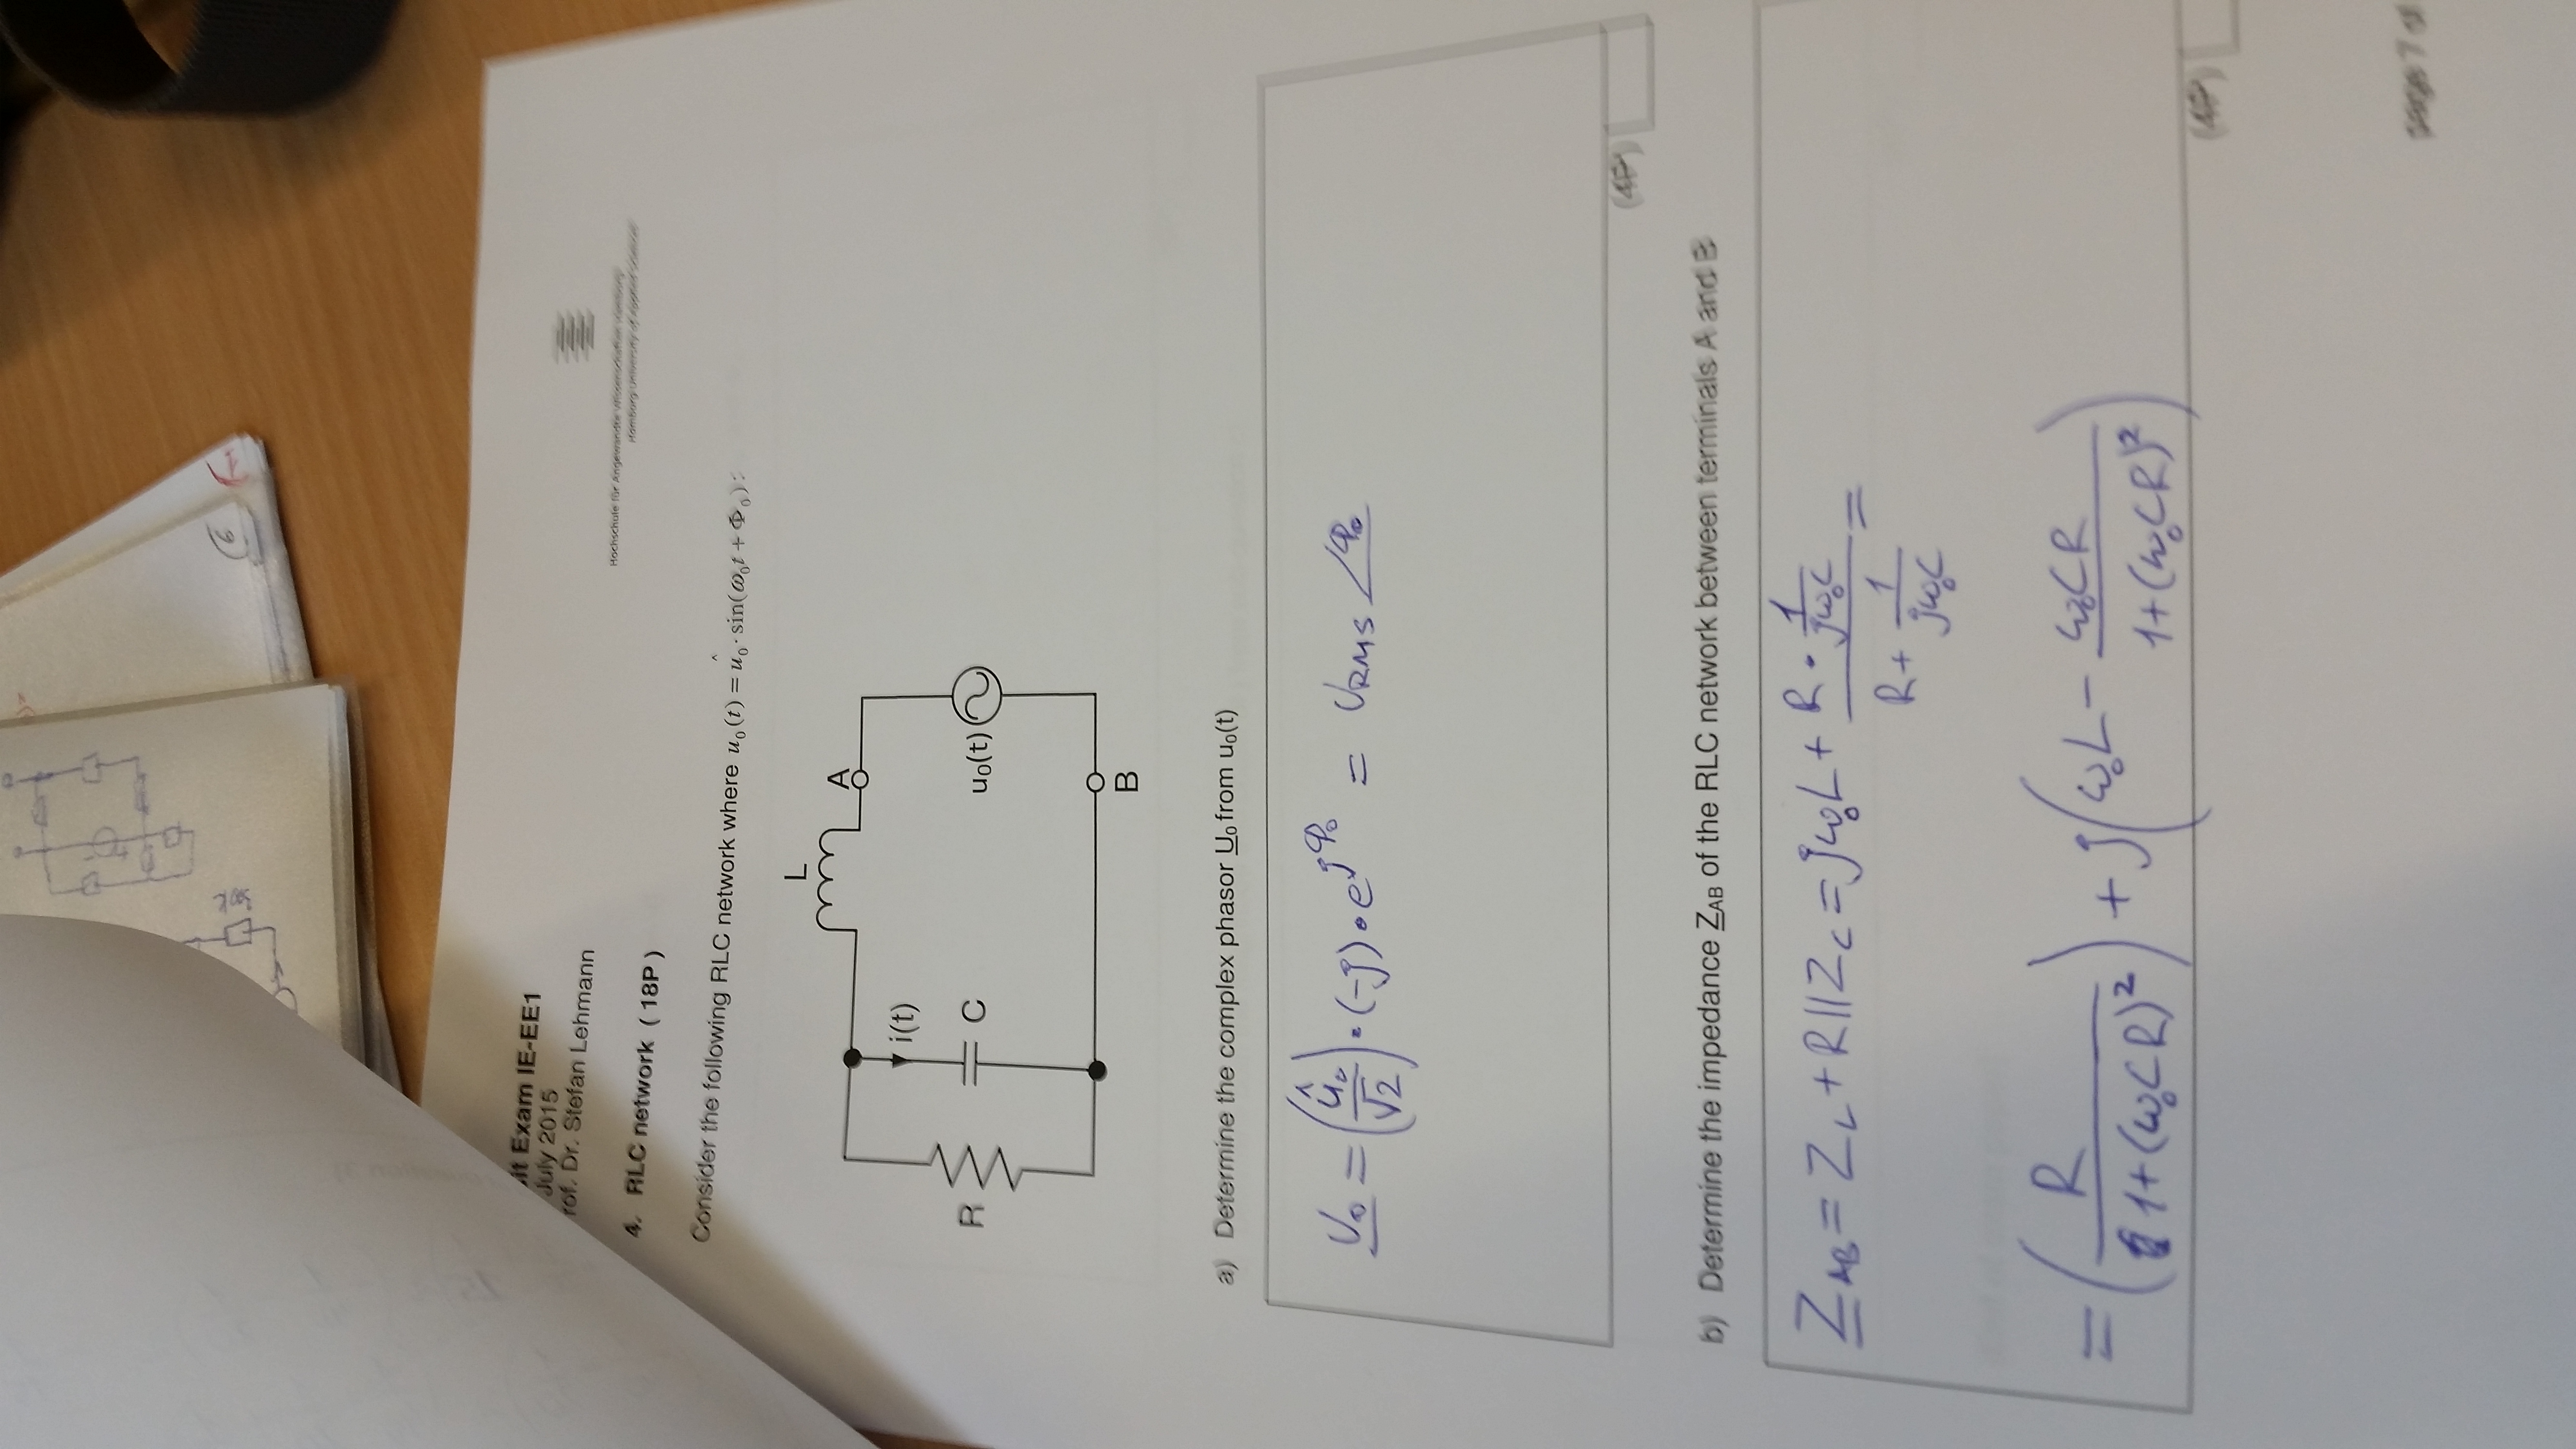 6
it Exam IE-EE1
July 2015
rof. Dr. Stefan Lehmann
Hochschule für Angewandte Wissenschaften Hamburg
Hamburg University of Applied Sciences
4. RLC network ( 18P )
Consider the following RLC network where u₀(t) = û₀·sin(ω₀t + Φ₀):
L
A
i(t)
R
C
u₀(t)
B
a) Determine the complex phasor U₀ from u₀(t)
U₀ = (û₀/√2)·(-j)·e^jφ₀ = U_RMS ∠φ₀
(4P)
b) Determine the impedance Z_AB of the RLC network between terminals A and B
Z_AB = Z_L + R||Z_C = jω₀L + (R · 1/(jω₀C))/(R + 1/(jω₀C)) =
= (R/(1+(ω₀CR)²)) + j(ω₀L − ω₀CR/(1+(ω₀CR)²))
(4P)
page 7 of